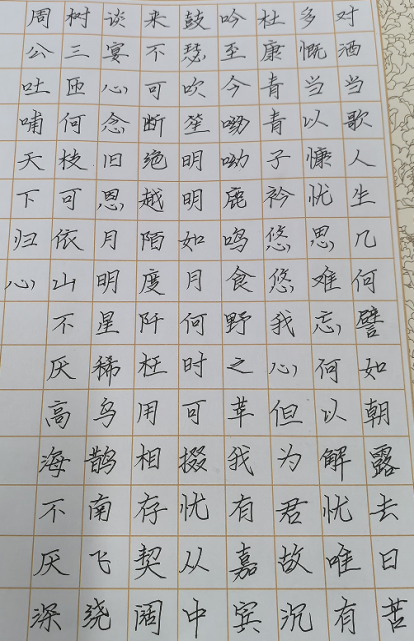 对酒当歌人生几何譬如朝露去日苦
多慨当以慷忧思难忘何以解忧唯有
杜康青青子衿悠悠我心但为君故沉
吟至今呦呦鹿鸣食野之苹我有嘉宾
鼓瑟吹笙明明如月何时可掇忧从中
来不可断绝越陌度阡枉用相存契阔
谈宴心念旧恩月明星稀乌鹊南飞绕
树三匝何枝可依山不厌高海不厌深
周公吐哺天下归心